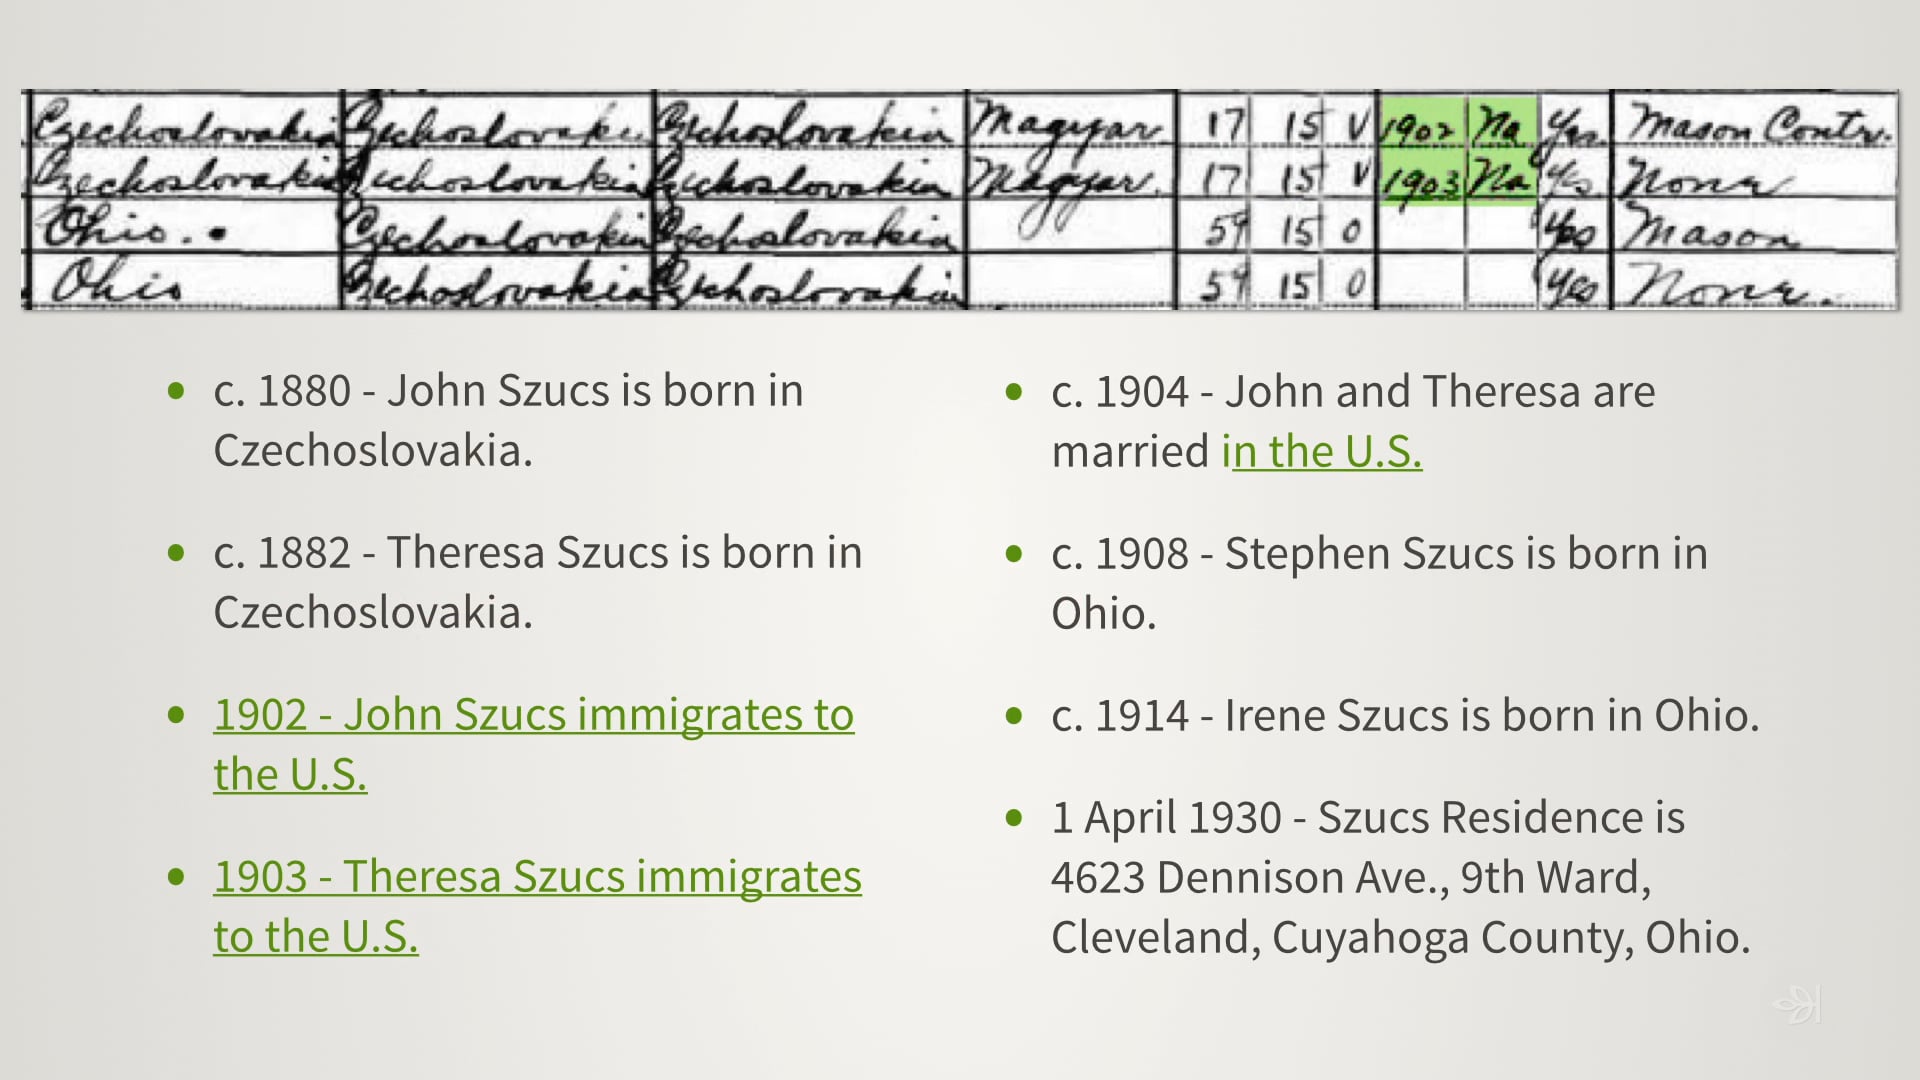 Czechoslovakia Czechoslovakia Czechoslovakia Magyar 17 15 V 1902 Na Yes Mason Contr.
Czechoslovakia Czechoslovakia Czechoslovakia Magyar. 17 15 V 1903 Na Yes None
Ohio. Czechoslovakia Czechoslovakia 59 15 0 Yes Mason
Ohio Czechoslovakia Czechoslovakia 59 15 0 Yes None.
• c. 1880 - John Szucs is born in
Czechoslovakia.
• c. 1882 - Theresa Szucs is born in
Czechoslovakia.
• 1902 - John Szucs immigrates to
the U.S.
• 1903 - Theresa Szucs immigrates
to the U.S.
• c. 1904 - John and Theresa are
married in the U.S.
• c. 1908 - Stephen Szucs is born in
Ohio.
• c. 1914 - Irene Szucs is born in Ohio.
• 1 April 1930 - Szucs Residence is
4623 Dennison Ave., 9th Ward,
Cleveland, Cuyahoga County, Ohio.